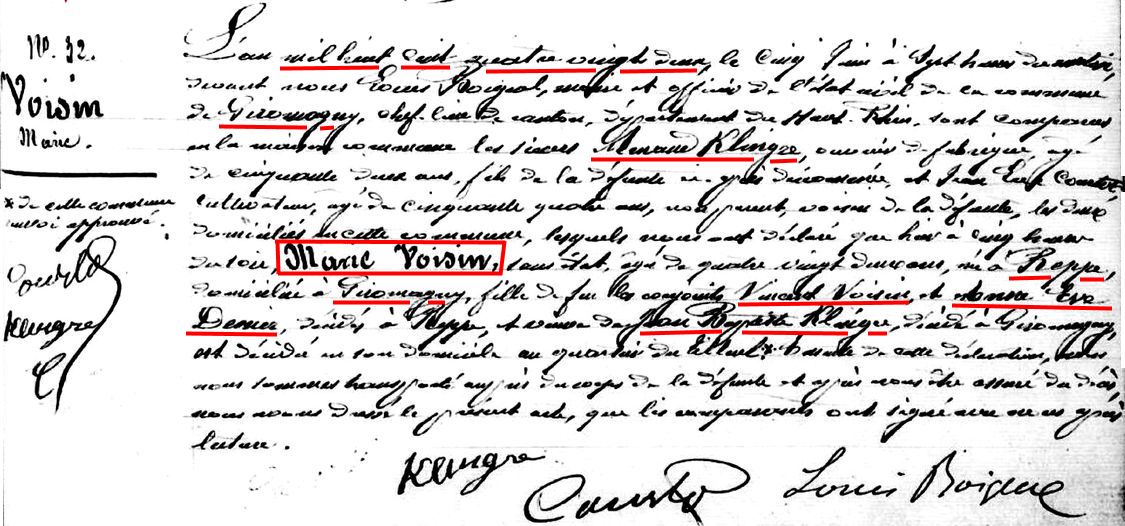 N°. 32.
Voisin
Marie.
* de cette commune
renvoi approuvé.
Courtot
Klingre
L'an mil huit cent quatre vingt deux, le cinq Juin à Sept heures du matin,
devant nous Louis Boigeol, maire et officier de l'état civil de la commune
de Giromagny, chef-lieu de canton, département du Haut-Rhin, sont comparus
en la maison commune les sieurs Menand Klingre, ouvrier de fabrique, agé
de cinquante deux ans, fils de la défunte ci-après dénommée, et Jean Courtot
cultivateur, agé de cinquante quatre ans, non parent, voisin de la défunte, les deux
domiciliés en cette commune, lesquels nous ont déclaré que hier à cinq heures
du soir, Marie Voisin, sans état, agé de quatre vingt deux ans, née à Reppe,
domiciliée à Giromagny, fille de feu les conjoints Vincent Voisin, et Eve
Demier, décédés à Reppe, et veuve de Jean Baptiste Klingre, décédé à Giromagny,
est décédée en son domicile au quartier du * de cette déclaration, nous
nous sommes transporté auprès du corps de la défunte et après nous être assuré du décès
nous avons dressé le présent acte, que les comparants ont signé avec nous après
lecture.
Klingre
Courtot
Louis Boigeol